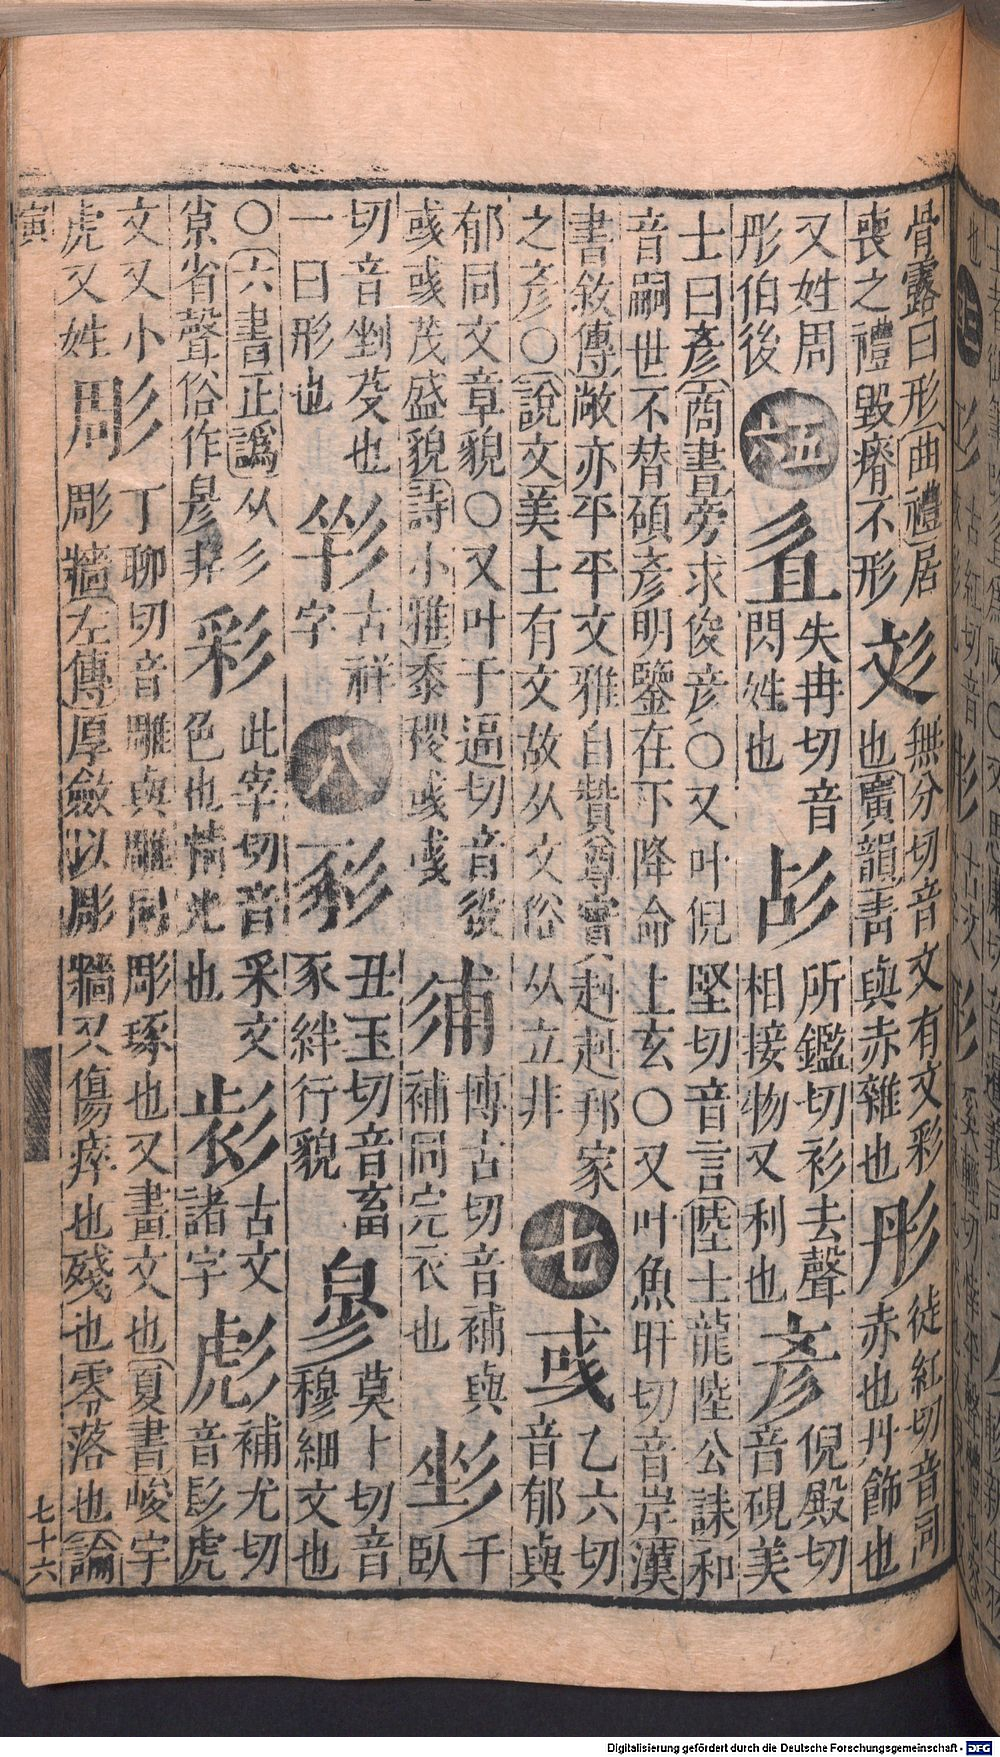 骨露曰形曲禮居
喪之禮毀瘠不形
彣
無分切音文有文彩
也廣韻青與赤雜也
彤
徒紅切音同
赤也丹飾也
又姓周
彤伯後
五
六
失冉切音
閃姓也
所鑑切衫去聲
相接物又利也
彥
倪殿切
音硯美
士曰彥商書旁求俊彥〇又叶倪堅切音言陸士龍陸公誄和
音嗣世不替碩彥明鑒在下降命上玄〇又叶魚旰切音岸漢
書敘傳敞亦平平文雅自贊尊實赳赳邦家
之彥〇說文美士有文故从文俗从立非
七
彧
乙六切
音郁與
郁同文章貌〇又叶于逼切音役
彧彧茂盛貌詩小雅黍稷彧彧
博古切音補與
補同完衣也
千
臥
切音剉芟也
一曰形也
古祥
字
八
丑玉切音畜
豕絆行貌
莫卜切音
穆細文也
〇六書正譌从彡
省聲俗作非
彩
此宰切音采文
色也精光也
古文
諸字
彪
補尤切
音髟虎
文又小
虎又姓
彫
丁聊切音雕與雕同彫琢也又畫文也夏書峻宇
彫牆左傳厚斂以彫牆又傷瘁也殘也零落也論
寅
七十六
Digitalisierung gefördert durch die Deutsche Forschungsgemeinschaft - DFG